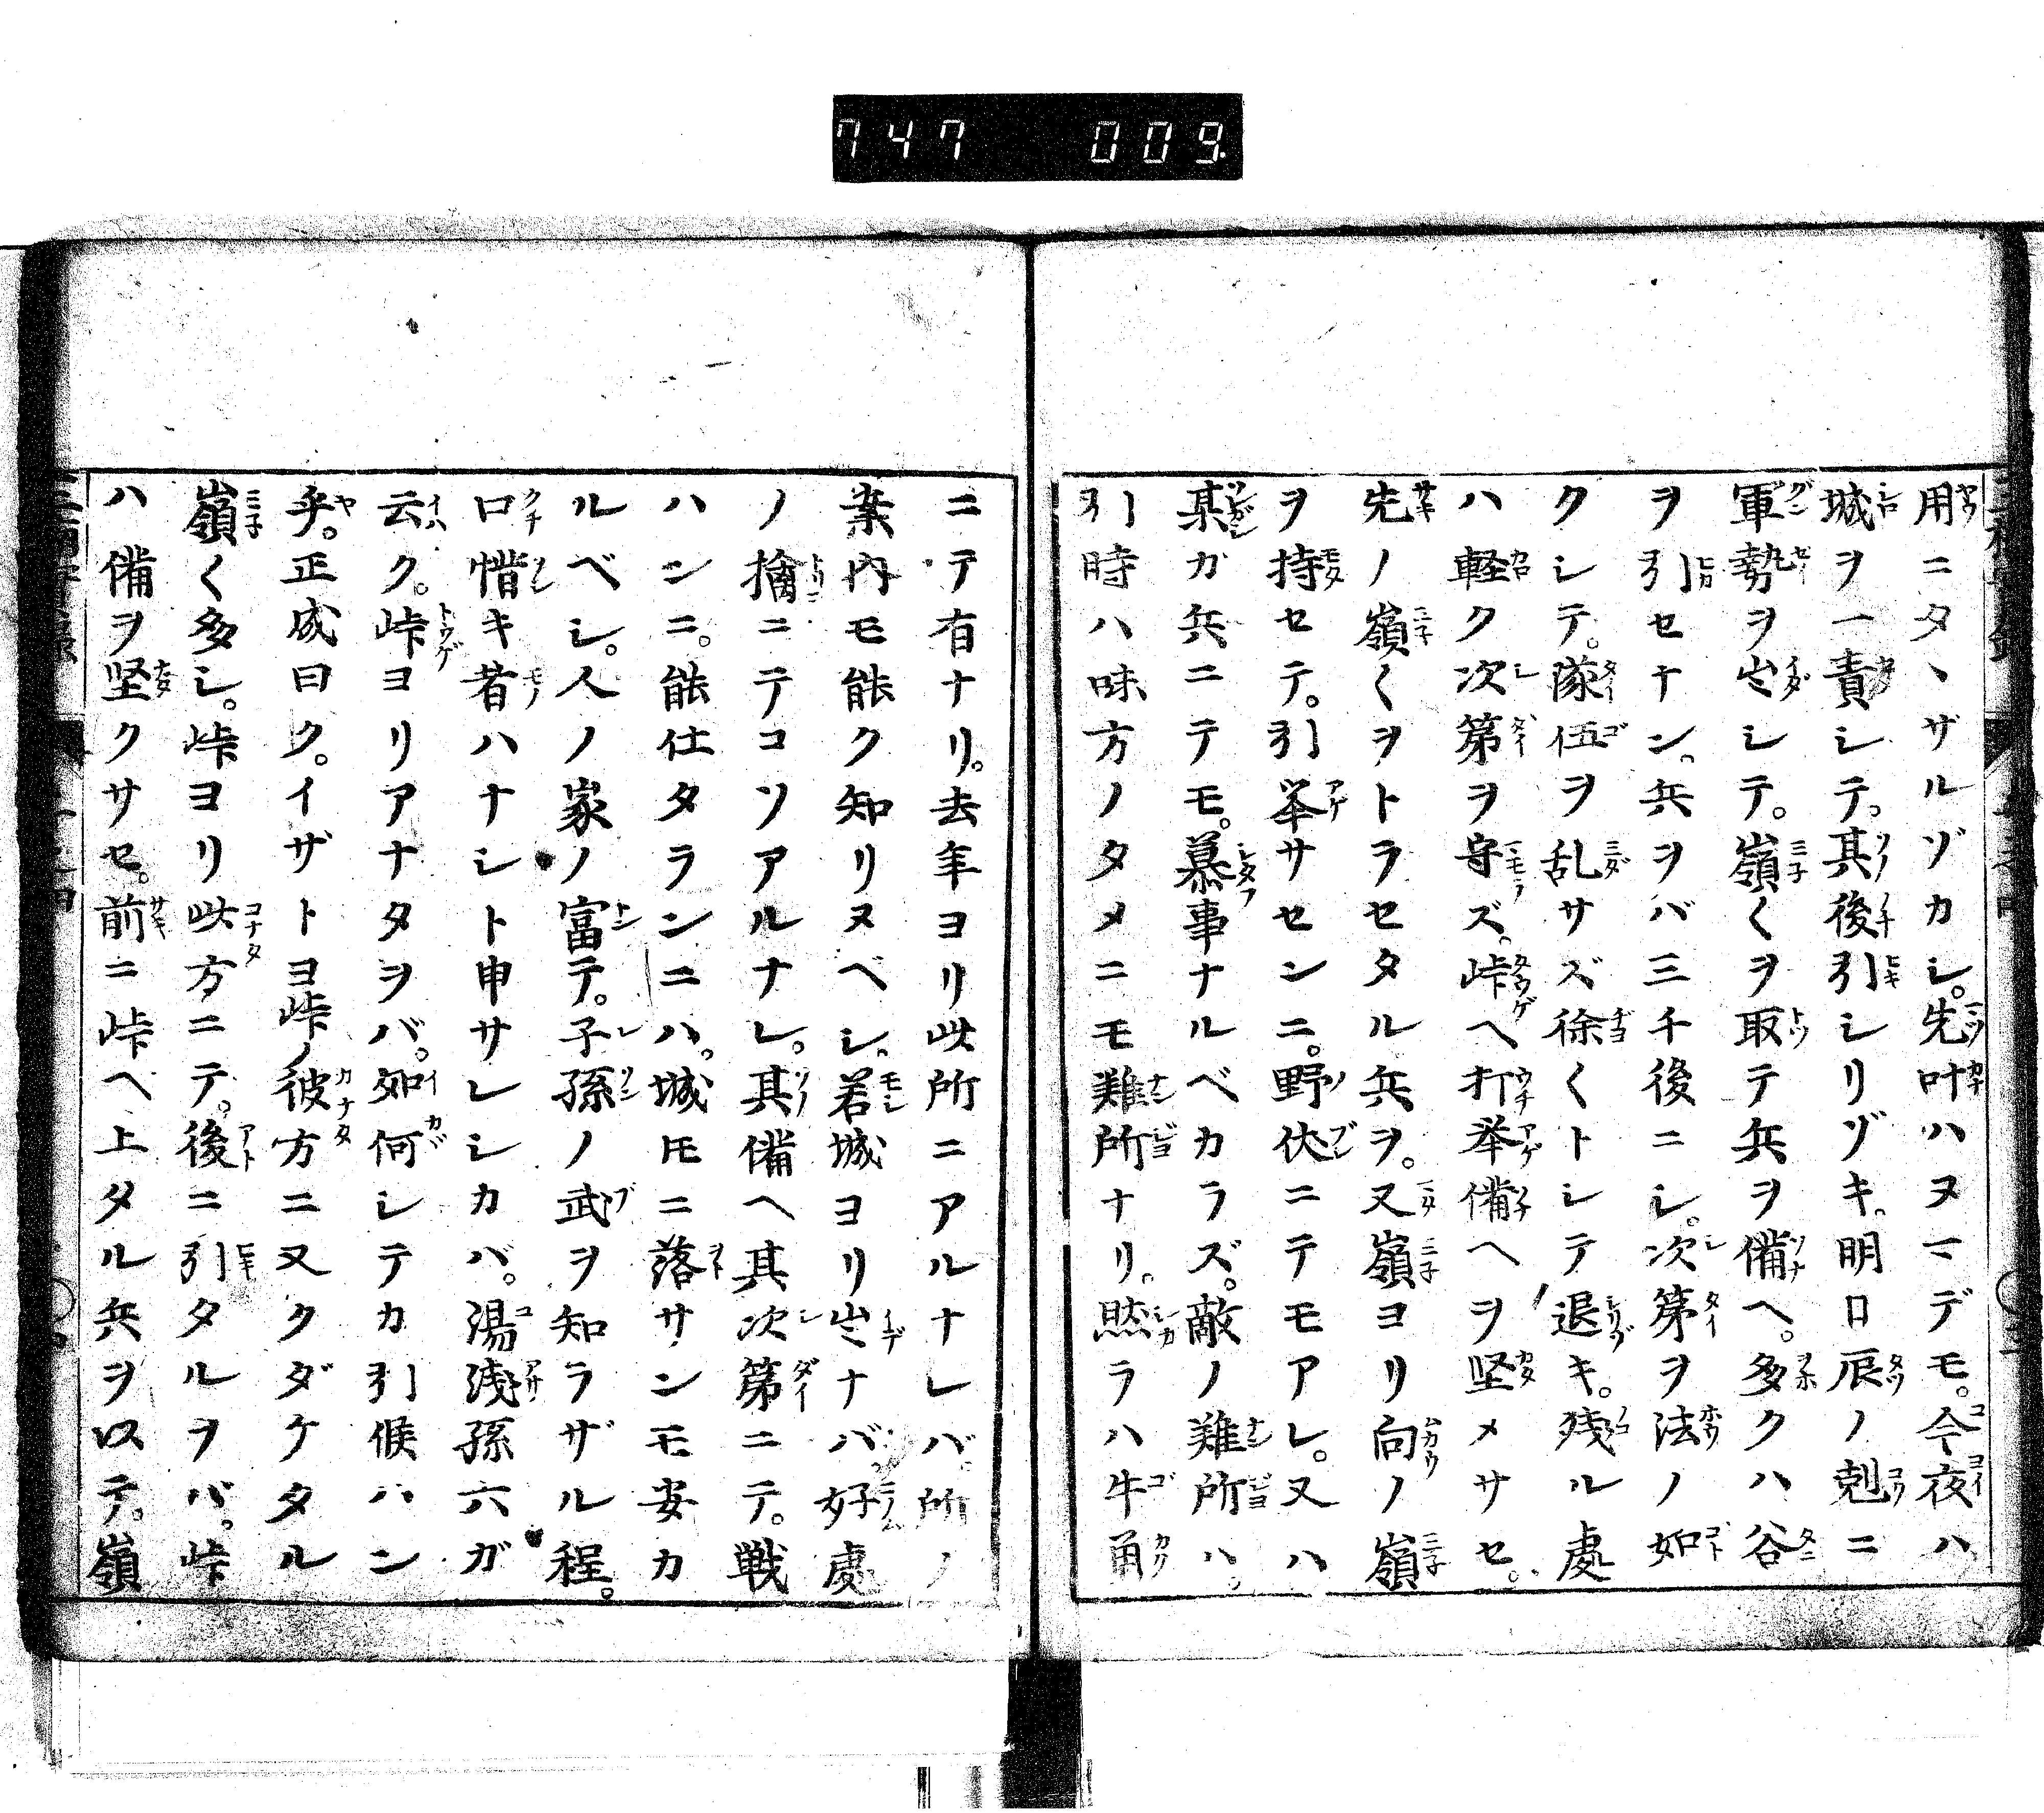 747 009.
用ニタヽザルゾカシ。先叶ハヌマデモ。今夜ハ
城ヲ一責シテ。其後引シリゾキ。明日辰ノ剋ニ
軍勢ヲ出シテ。嶺〱ヲ取テ兵ヲ備ヘ。多クハ谷
ヲ引セナン。兵ヲバ三千後ニシ。次第ヲ法ノ如
クシテ。隊伍ヲ乱サズ徐〱トシテ退キ。残ル處
ハ軽ク次第ヲ守ズ。峠ヘ打挙備ヘヲ堅メサセ。
先ノ嶺〱ヲトラセタル兵ヲ。又嶺ヨリ向ノ嶺
ヲ持セテ。引挙サセンニ。野伏ニテモアレ。又ハ
某ガ兵ニテモ。慕事ナルベカラズ。敵ノ難所ハ。
引時ハ味方ノタメニモ難所ナリ。然ラハ牛角
ニテ有ナリ。去年ヨリ此所ニアルナレバ。所ノ
案内モ能ク知リヌベシ。若城ヨリ出ナバ。好處
ノ擒ニテコソアルナレ。其備ヘ其次第ニテ。戦
ハンニ。能仕タランニハ。城モニ落サンモ安カ
ルベシ。人ノ家ノ富テ。子孫ノ武ヲ知ラザル程。
口惜キ者ハナシト申サレシカバ。湯浅孫六ガ
云ク。峠ヨリアナタヲバ。如何シテカ引候ハン
乎。正成曰ク。イザトヨ峠ノ彼方ニ又クダケタル
嶺〱多シ。峠ヨリ此方ニテ。後ニ引タルヲバ。峠
ハ備ヲ堅クサセ。前ニ峠ヘ上タル兵ヲ以テ。嶺